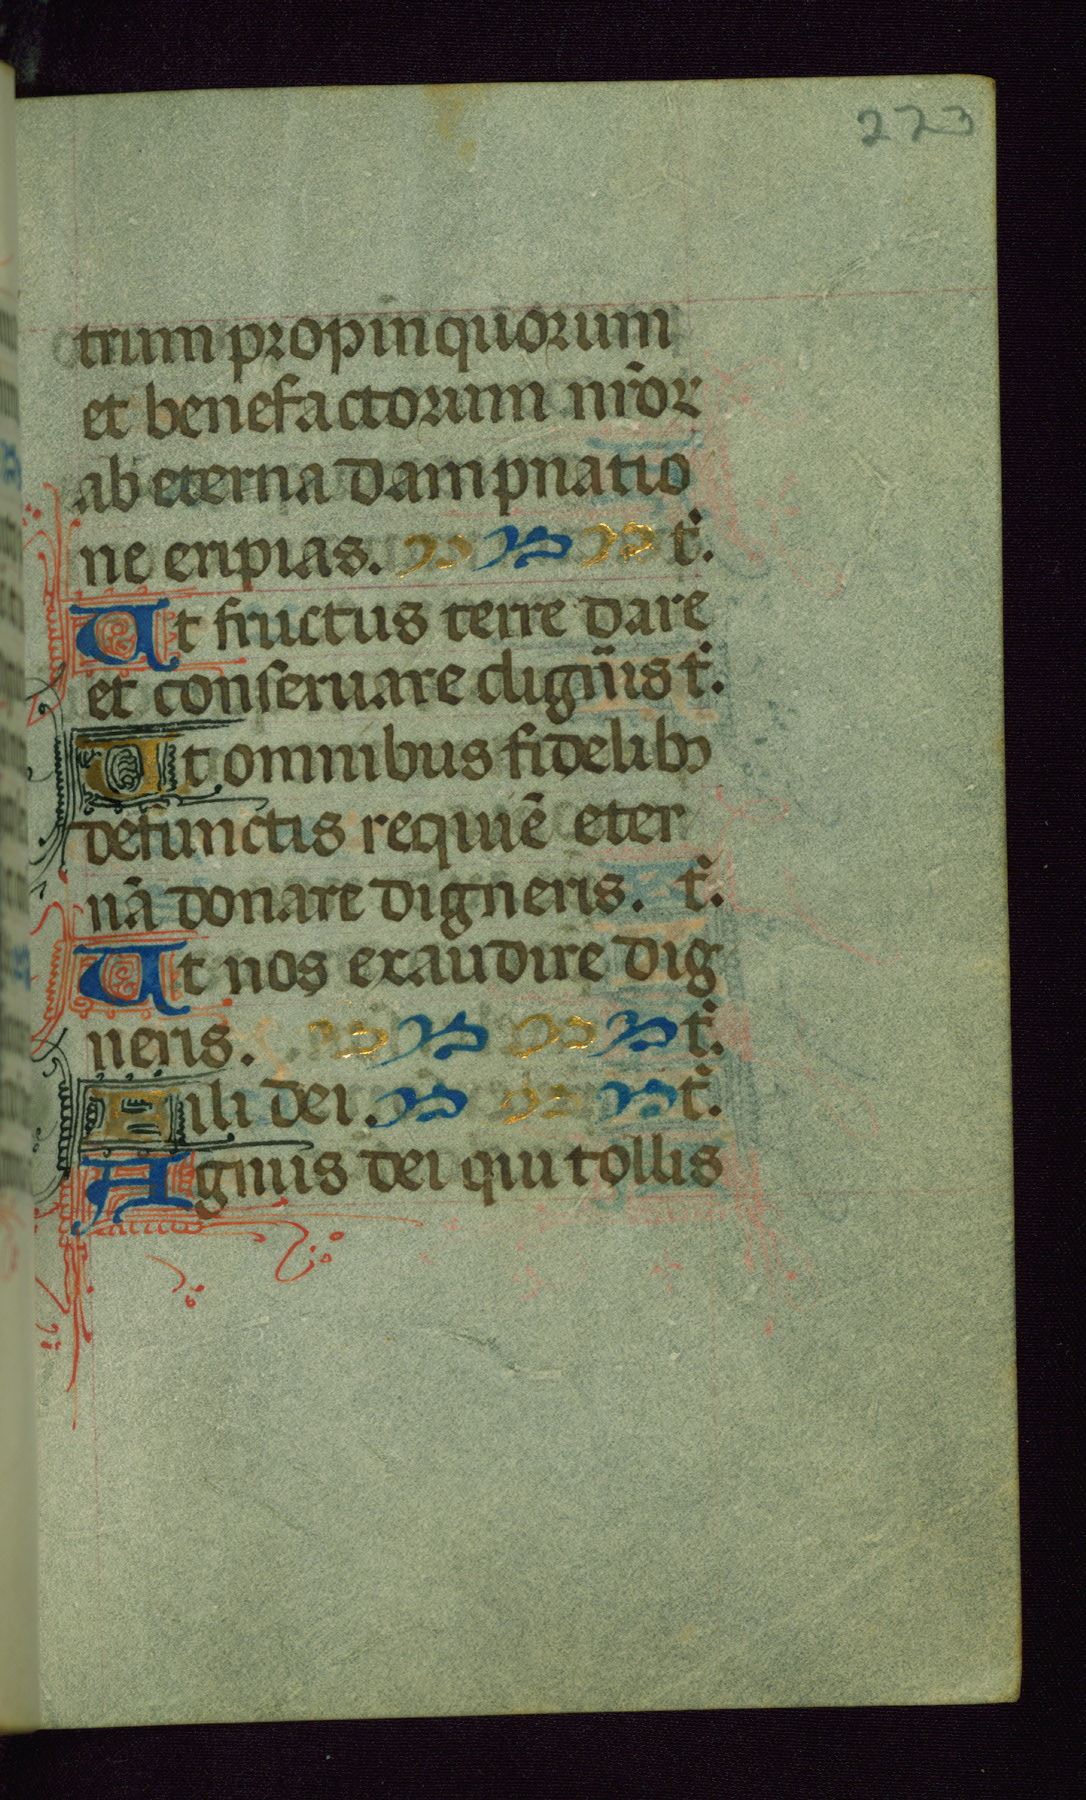 223
trum propinquorum
et benefactorum nr̄oꝝ
ab eterna dampnatio
ne eripias. t̄.
Ut fructus terre dare
et conseruare dign̄is t̄.
Ut omnibus fidelibꝫ
defunctis requiē eter
nā donare digneris. t̄.
Ut nos exaudire dig
neris. t̄.
Fili dei. t̄.
Agnus dei qui tollis